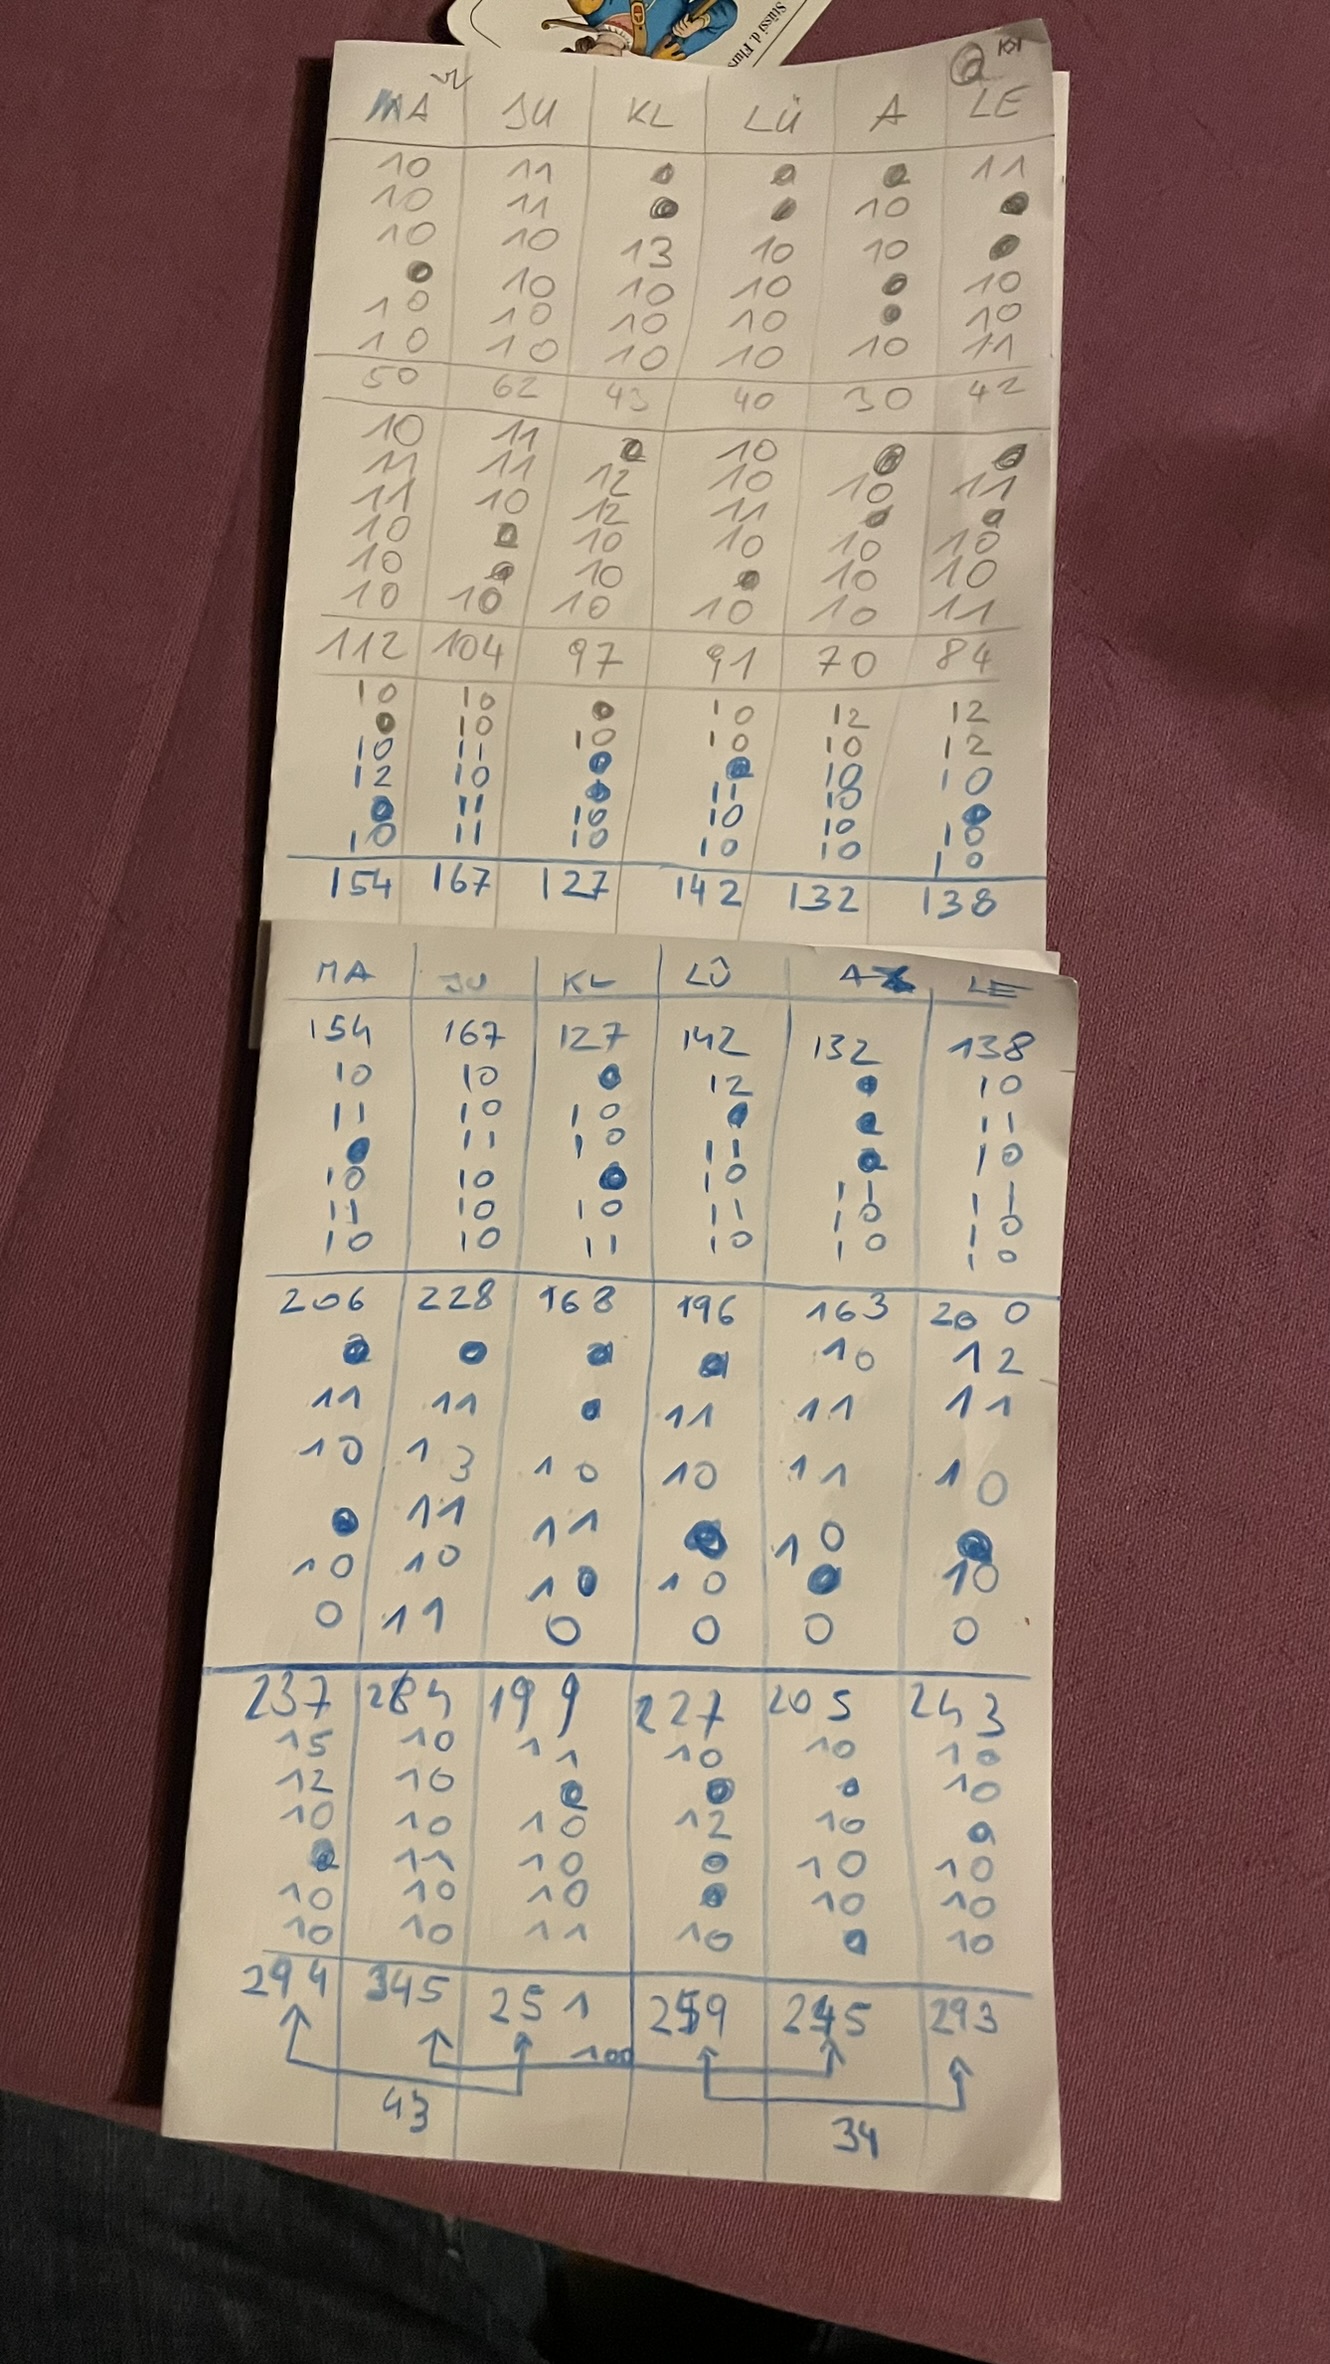 Stüssi d. Flurs
MA JU KL LÜ A LE
10 11 0 0 0 11
10 11 0 0 10 0
10 10 13 10 10 0
0 10 10 10 0 10
10 10 10 10 0 10
10 10 10 10 10 11
50 62 43 40 30 42
10 11 0 10 0 0
11 11 12 10 10 11
11 10 12 11 0 0
10 0 10 10 10 10
10 0 10 0 10 10
10 10 10 10 10 11
112 104 97 91 70 84
10 10 0 10 12 12
0 10 10 10 10 12
10 11 0 0 10 10
12 10 0 11 10 0
0 11 10 10 10 10
10 11 10 10 10 10
154 167 127 142 132 138
MA JU KL LÜ A LE
154 167 127 142 132 138
10 10 0 12 0 10
11 10 10 0 0 11
0 11 10 11 0 10
10 10 0 10 11 11
11 10 10 11 10 10
10 10 11 10 10 10
206 228 168 196 163 200
0 0 0 0 10 12
11 11 0 11 11 11
10 13 10 10 11 10
0 11 11 0 10 0
10 10 10 10 0 10
0 11 0 0 0 0
237 284 199 227 205 243
15 10 11 10 10 10
12 10 0 0 0 10
10 10 10 12 10 0
0 11 10 0 10 10
10 10 10 0 10 10
10 10 11 10 0 10
294 345 251 259 245 293
100
43
34